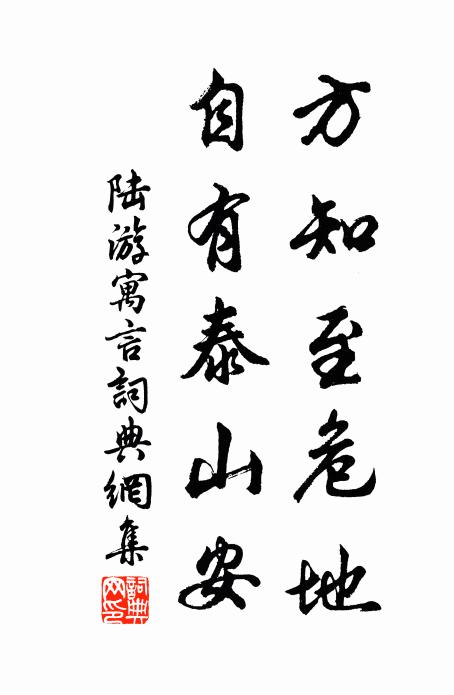 方知至危地
自有泰山安
陆游寓言詞典網集
詞典